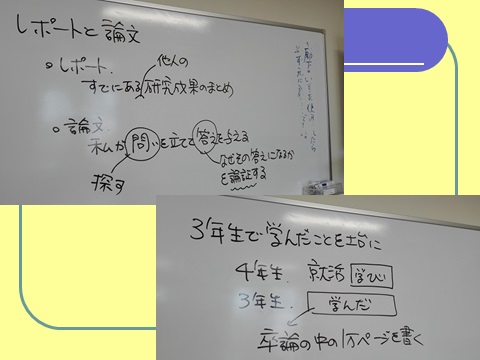 レポートと論文
・レポート.
他人の
すでにある研究成果のまとめ
・論文.
私が問いを立てて答えを与える
なぜその答えになるか
を論証する
探す
3年生で学んだことを土台に
4年生. 就活 学び
3年生. 学んだ
卒論の中の1万ページを書く